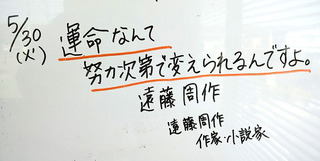 5/30
(火)
運命なんて
努力次第で変えられるんですよ。
遠藤周作
遠藤周作
作家・小説家